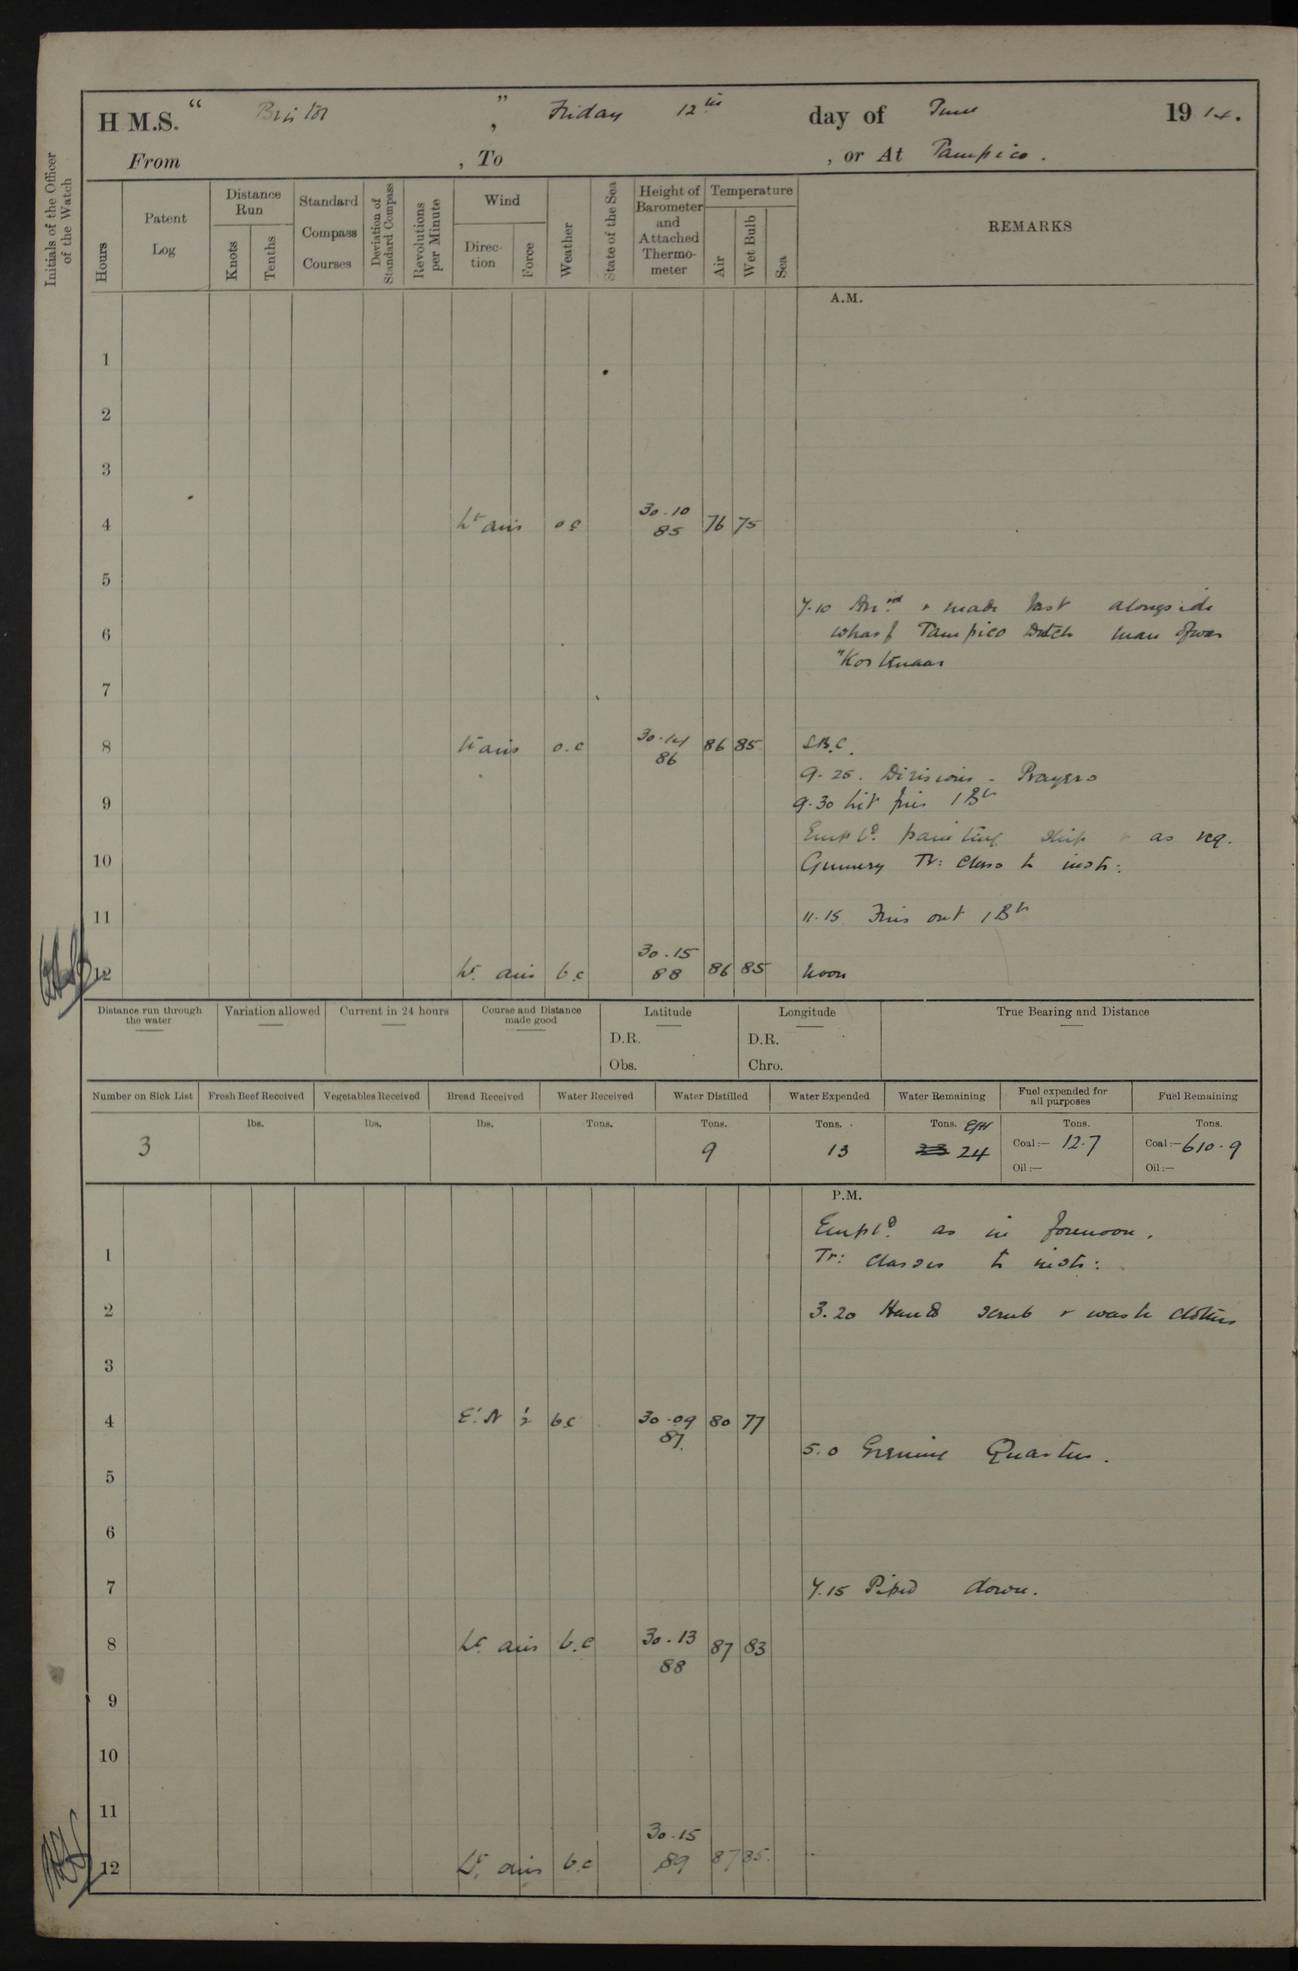 H.M.S. " Bristol " , Friday 12th day of June 1914.
From , To , or At Tampico.
Initials of the Officer of the Watch
Hours
Patent Log
Distance Run
Knots
Tenths
Standard Compass Courses
Deviation of Standard Compass
Revolutions per Minute
Wind
Direction
Force
Weather
State of the Sea
Height of Barometer and Attached Thermometer
Temperature
Air
Wet Bulb
Sea
REMARKS
A.M.
1
2
3
4 Lt airs o.c 30.10 85 76 75
5
7.10 Arrd & made fast alongside
6 wharf Tampico Dutch man of war
"Kortenaar
7
8 Lt airs o.c 30.14 86 86 85 S.B.C.
9.25. Divisions - Prayers
9 9.30 Lit fires 1 Br
Empld. painting ship & as req.
10 Gunnery Tr: Class to instr:
11 11.15 Fires out 1 Br
12 Lt. airs b.c 30.15 88 86 85 Noon
Distance run through the water
Variation allowed
Current in 24 hours
Course and Distance made good
Latitude
D.R.
Obs.
Longitude
D.R.
Chro.
True Bearing and Distance
Number on Sick List
3
Fresh Beef Received
lbs.
Vegetables Received
lbs.
Bread Received
lbs.
Water Received
Tons.
Water Distilled
Tons.
9
Water Expended
Tons.
13
Water Remaining
Tons.
23 24
Fuel expended for all purposes
Tons.
Coal:— 12.7
Oil:—
Fuel Remaining
Tons.
Coal:— 610.9
Oil:—
P.M.
Empld. as in forenoon.
1 Tr: Classes to instr:
2 3.20 Hands scrub & wash clothes
3
4 E'N 1/2 b.c 30.09 87. 80 77
5.0 Evening Quarters.
5
6
7 7.15 Piped down.
8 Lt. airs b.c 30.13 88 87 83
9
10
11
12 Lt. airs b.c 30.15 89 87 85.